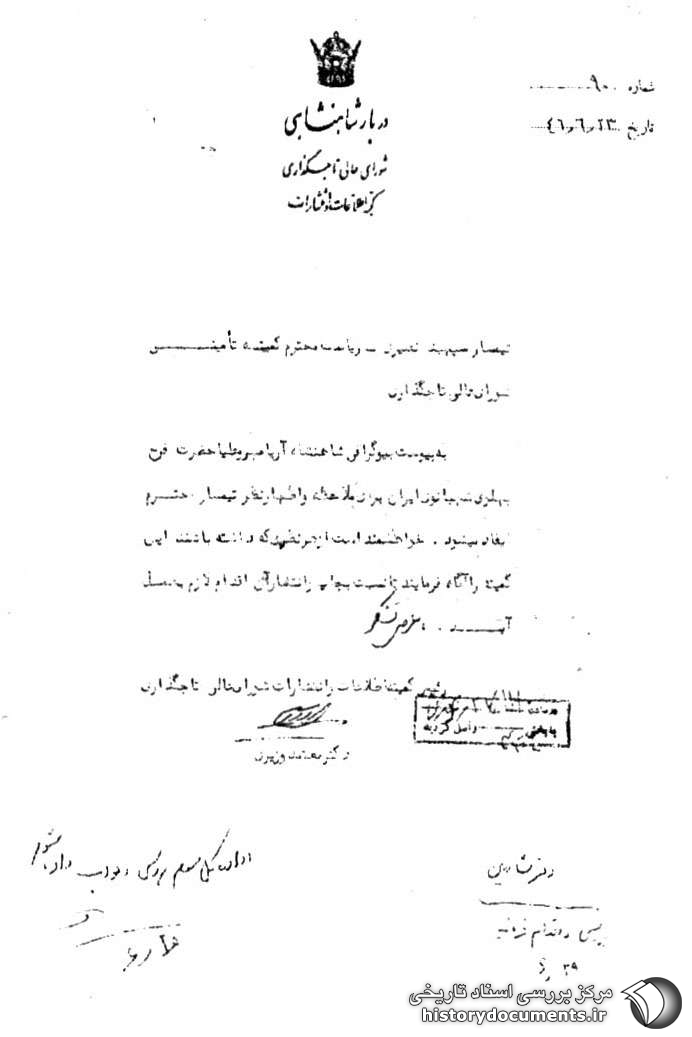 شماره ۹۰
تاریخ ۴۶٫۶٫۲۳
دربار شاهنشاهی
شورای عالی تاجگذاری
کمیته اطلاعات و انتشارات
تیمسار سپهبد نصیری ــ ریاست محترم کمیته تأمین
شورای عالی تاجگذاری
به پیوست بیوگرافی شاهنشاه آریامهر و علیاحضرت فرح
پهلوی شهبانوی ایران برای ملاحظه و اظهارنظر تیمسار محترم
ایفاد میشود . خواهشمند است از هر نظری که داشته باشند این
کمیته را آگاه فرمایند تا نسبت بچاپ و انتشار آن اقدام لازم بعمل
آید . با عرض تشکر
رئیس کمیته اطلاعات و انتشارات شورای عالی تاجگذاری
دکتر معتمد وزیری
واصل گردید
اداره کل سوم بررسی و جواب داده شود
بررسی و اقدام فرمائید
مرکز بررسی اسناد تاریخی
historydocuments.ir